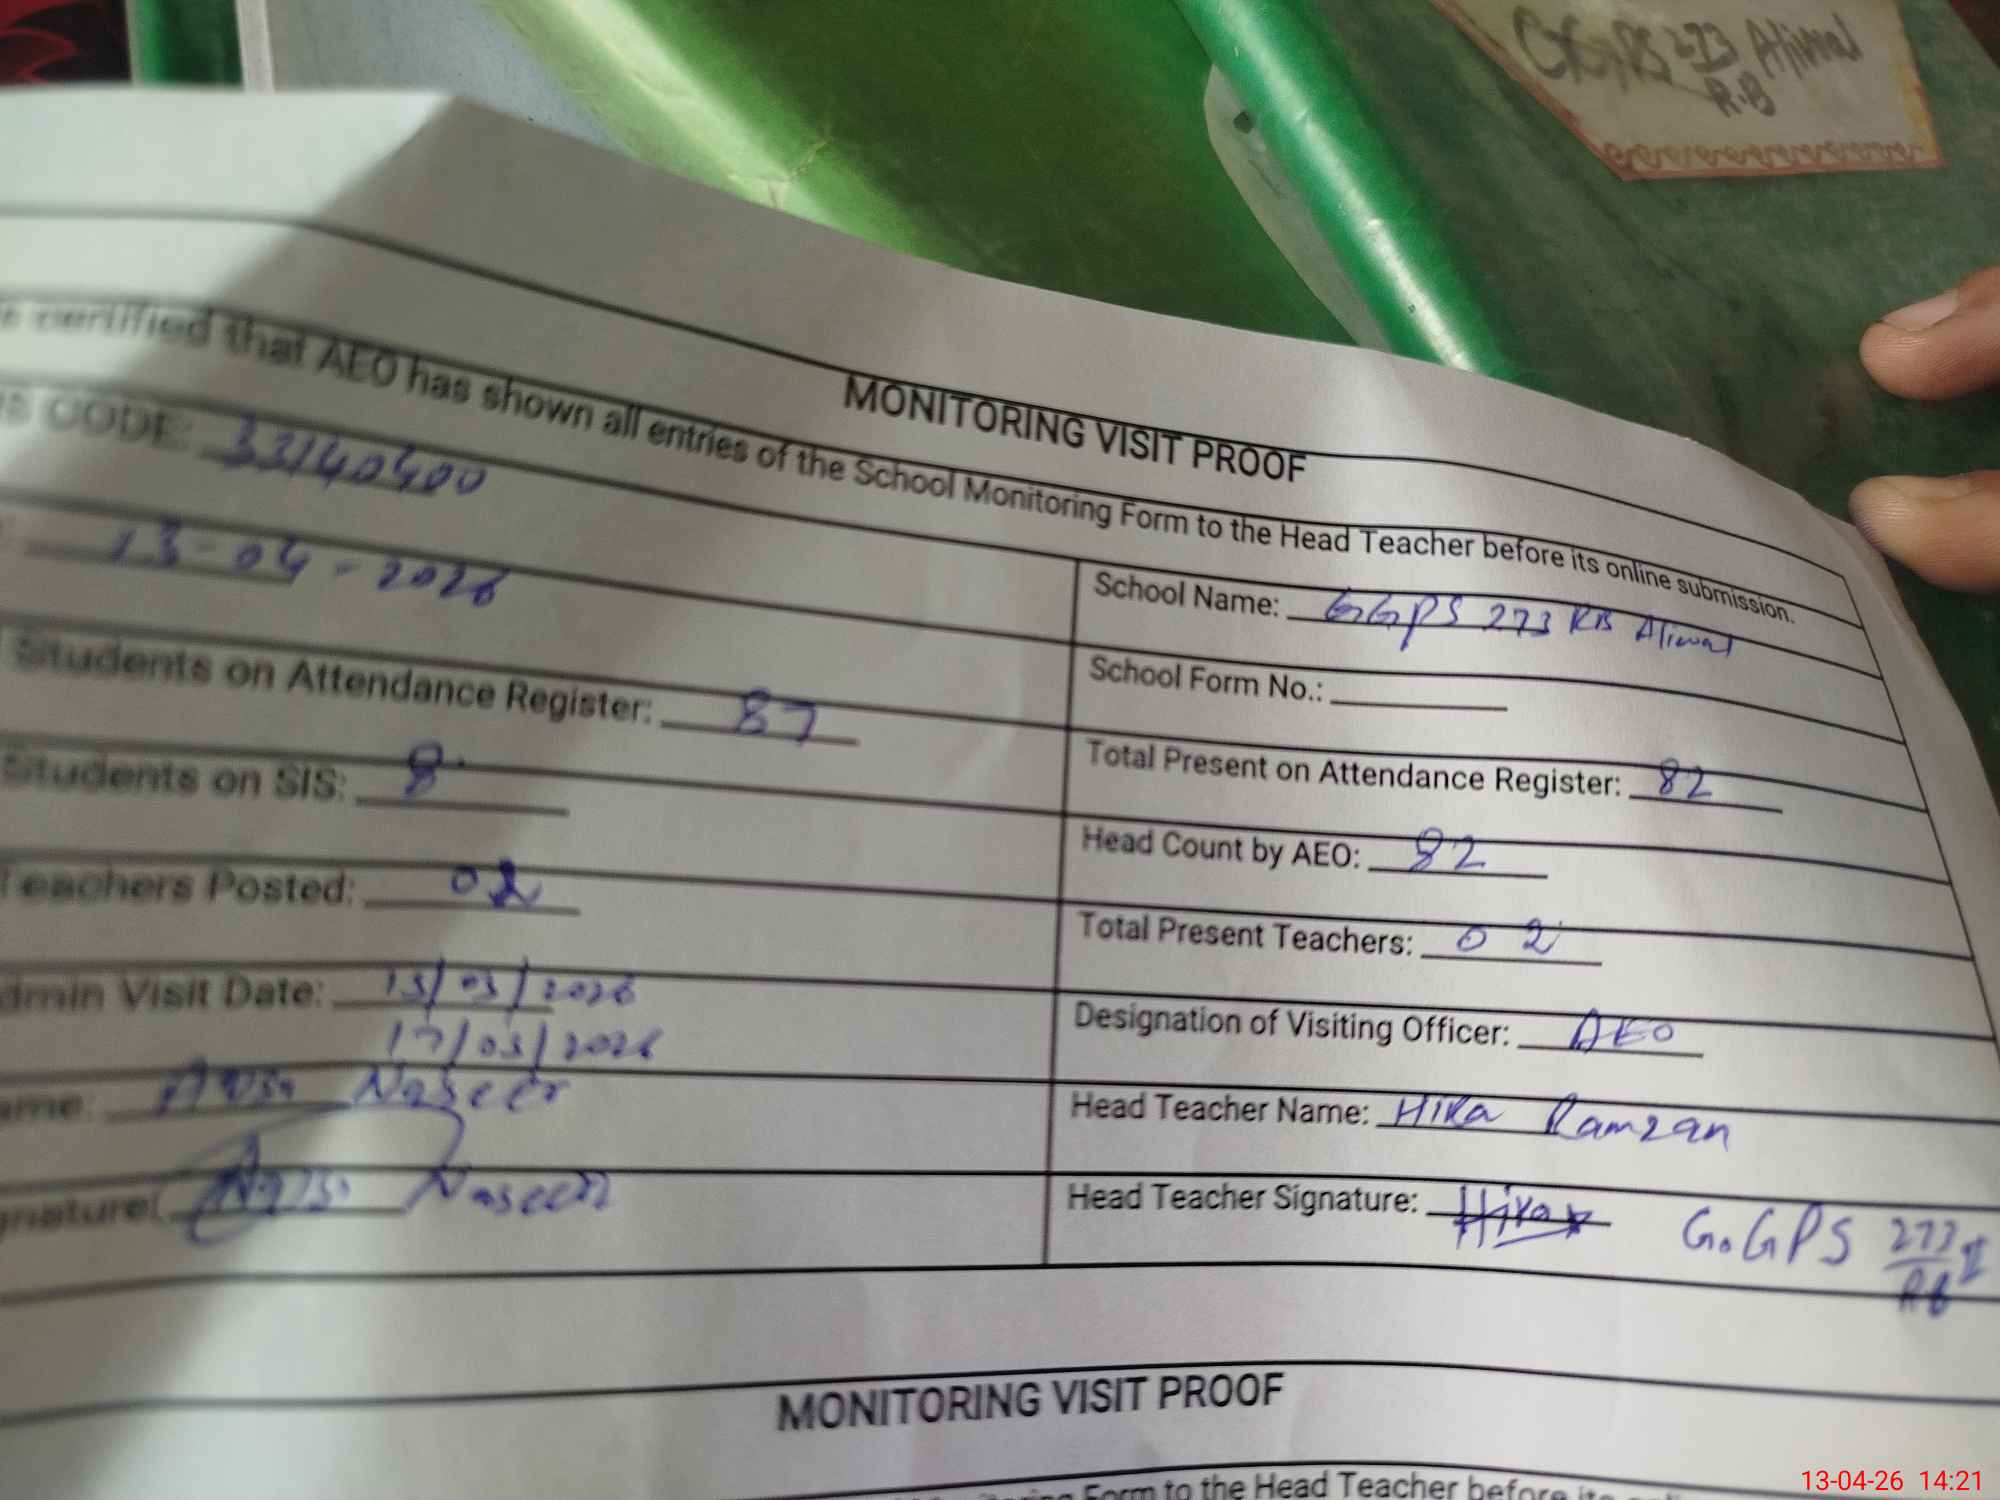 GGPS 273 Aliwal
R.B
MONITORING VISIT PROOF
certified that AEO has shown all entries of the School Monitoring Form to the Head Teacher before its online submission.
CODE: 33140400
School Name: GGPS 273 RB Aliwal
13-04-2026
School Form No.:
Students on Attendance Register: 87
Total Present on Attendance Register: 82
Students on SIS: 8
Head Count by AEO: 82
Teachers Posted: 02
Total Present Teachers: 02
dmin Visit Date: 13/03/2026
17/03/2026
Designation of Visiting Officer: AEO
ame: Naseer
Head Teacher Name: Hira Ramzan
gnature: Naseer
Head Teacher Signature: Hira G.GPS 273
RB
MONITORING VISIT PROOF
Form to the Head Teacher before its
13-04-26 14:21